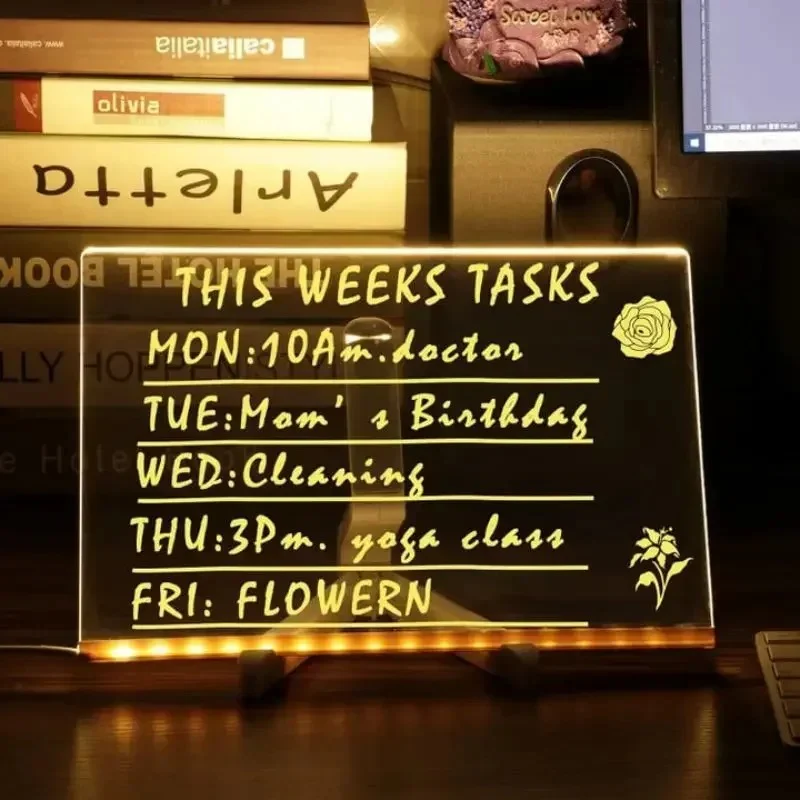 Sweet Love
www.caliaitalia.com
caliaitalia
olivia
Arletta
THE HOTEL BOOK
THIS WEEKS TASKS
MON:10Am.doctor
TUE:Mom's Birthday
WED:Cleaning
THU:3Pm. yoga class
FRI: FLOWERN